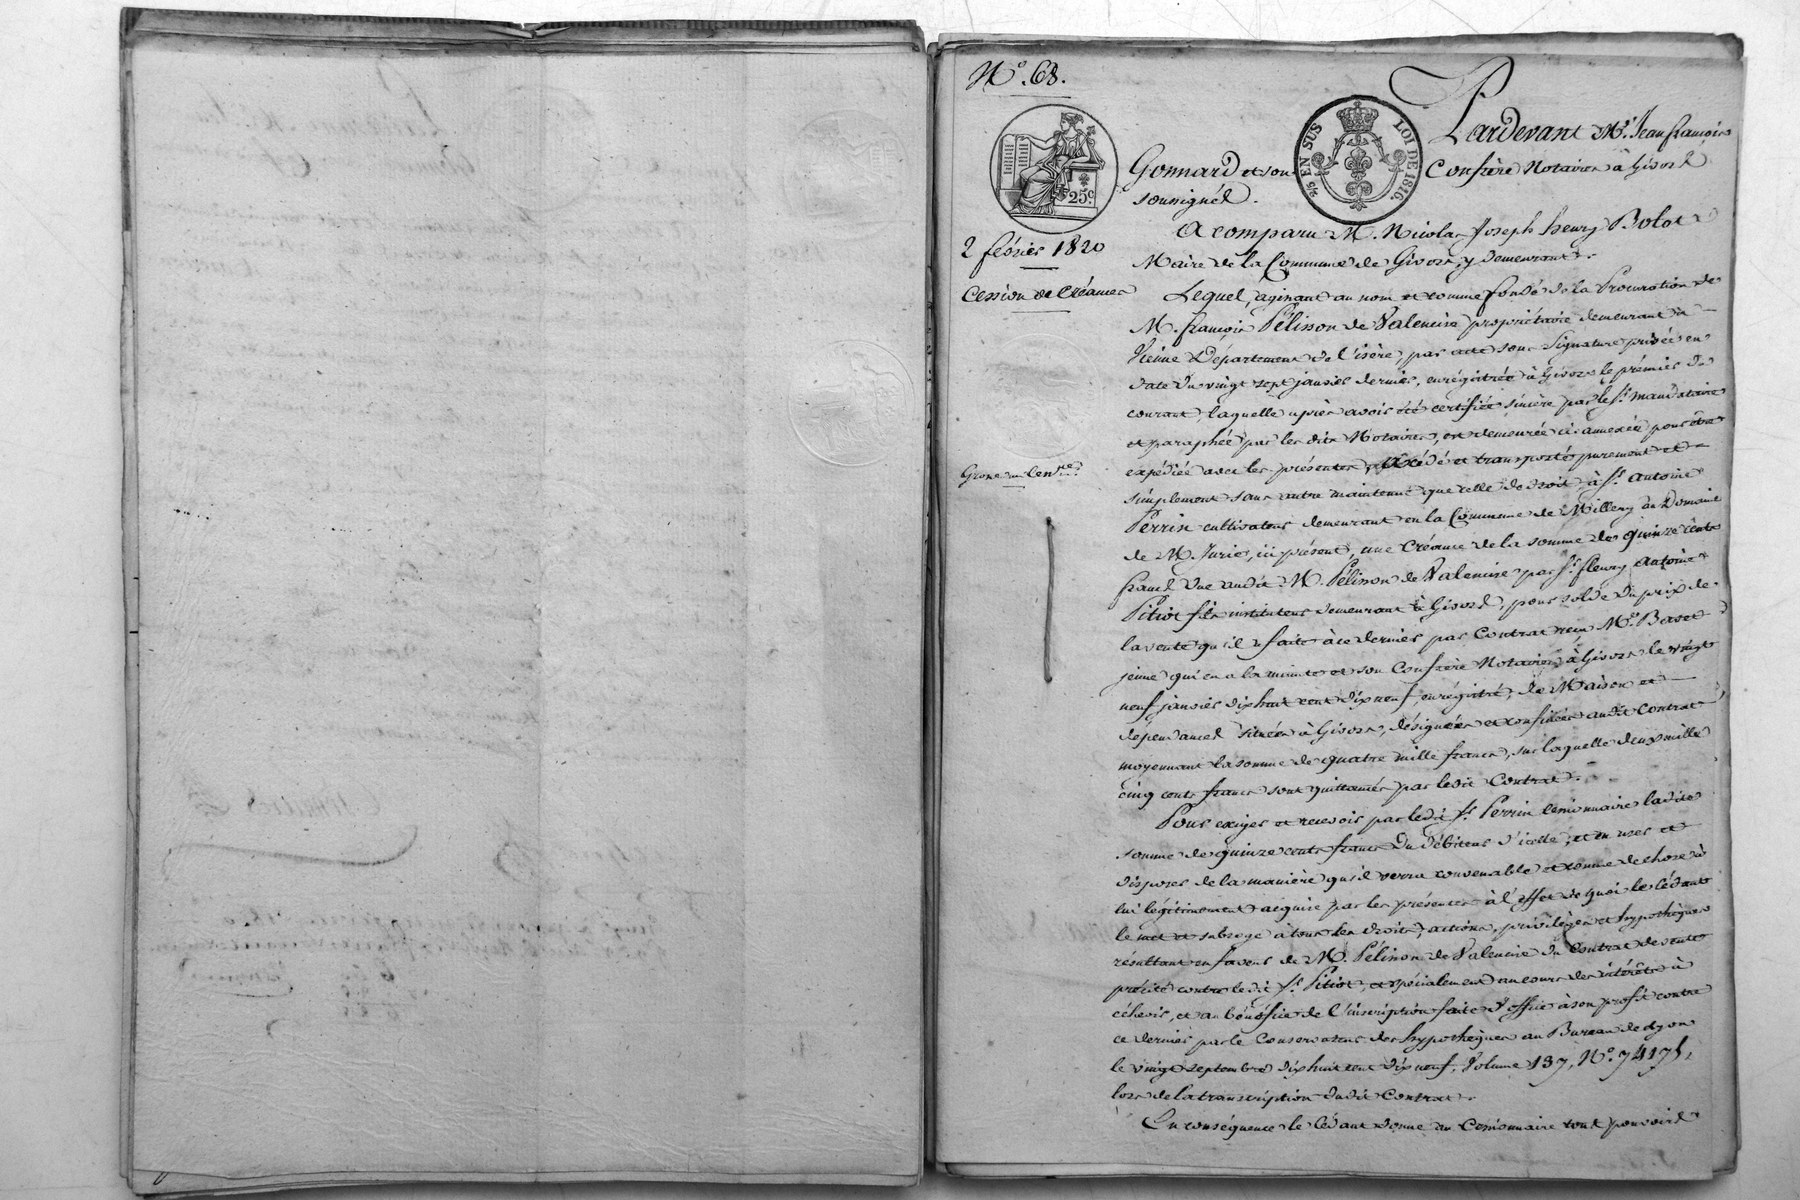 N.º 68.
25 EN SUS LOI DE 1816.
25c
2 février 1820
Cession de Créances
Pardevant Me. Jean françois
Gonnard et son Confrère Notaires à Givors
soussignés.
A comparu M. Nicolas Joseph henry Bolot
Maire de la Commune de Givors, y demeurant.
Lequel, agissant au nom et comme fondé de la Procuration de
M. françois Pélisson de Valencise propriétaire demeurant à
Vienne Département de l'isère, par acte sous Signature privée en
date du vingt sept janvier dernier, enrégistrée à Givors le prémier du
courant, laquelle après avoir été certifiée sincère par le Sr. mandataire
et paraphée par les dits Notaires, est demeurée ci annexée pour être
Grosse au Cenre.
expédiée avec les présentes, a cédé et transporté purement et
simplement sans autre maintenue que celle de droit à Sr. Antoine
Perrin cultivateur demeurant en la Commune de Millery au Domaine
de M. Jurie, ici présent, une Créance de la somme de quinze cents
francs due audit M. Pélisson de Valencise par Sr. fleury Antoine
Pitiot fils instituteur demeurant à Givors, pour solde du prix de
la vente qu'il a faite à ce dernier par Contrat reçu Me. Baset
jeune qui en a la minute et son Confrère Notaires à Givors le vingt
neuf janvier dix huit cent dix neuf, enrégistré, de Maison et
dépendances situées à Givors, désignées et confinées audit Contrat
moyennant la somme de quatre mille francs, sur laquelle deux mille
cinq cents francs sont quittancés par ledit Contrat.
Pour exiger et recevoir par ledit Sr. Perrin cessionnaire ladite
somme de quinze cents francs du Débiteur d'icelle, et en user et
disposer de la manière qu'il verra convenable et comme de chose à
lui légitimement acquise par les présentes à l'effet de quoi le Cédant
le met et subroge à tous les droits, actions, privilèges et hypothèques
résultant en faveur de M. Pélisson de Valencise du Contrat de vente
précité contre ledit Sr. Pitiot, et spécialement au cours des intérêts à
échoir, et au bénéfice de l'inscription faite d'office à son profit contre
ce dernier par le Conservateur des hypothèques au Bureau de Lyon
le vingt septembre dix huit cent dix neuf, Volume 137, N.º 74175,
lors de la transcription dudit Contrat.
En conséquence le Cédant donne au Cessionnaire tout pouvoirs